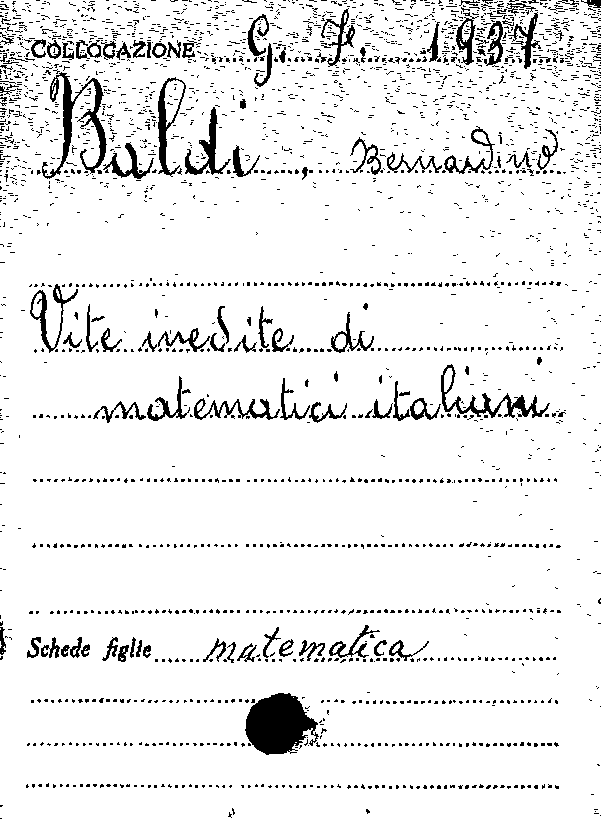 COLLOCAZIONE G. F. 1937
Baldi, Bernardino
Vite inedite di
matematici italiani
Schede figlie matematica